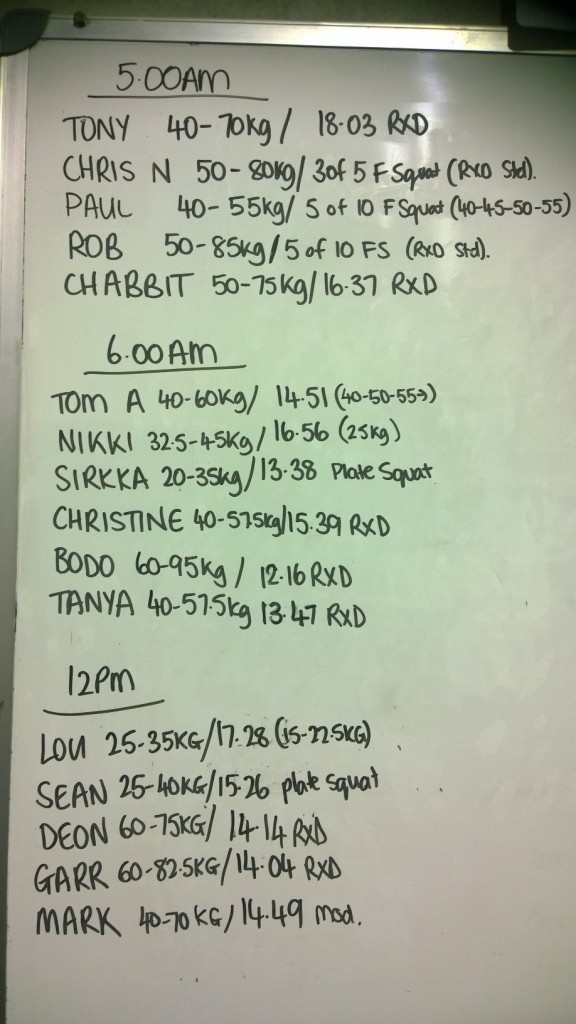 5.00AM
TONY 40-70kg/ 18.03 RXD
CHRIS N 50-80kg/3 of 5 F Squat (RXD Std).
PAUL 40-55kg/ 5 of 10 F Squat (40-45-50-55)
ROB 50-85kg/5 of 10 FS (RXD Std).
CHABBIT 50-75kg/16.37 RXD
6.00AM
TOM A 40-60kg/ 14.51 (40-50-55→)
NIKKI 32.5-45kg/16.56 (25kg)
SIRKKA 20-35kg/13.38 Plate Squat
CHRISTINE 40-57.5kg/15.39 RXD
BODO 60-95kg/ 12.16 RXD
TANYA 40-57.5kg 13.47 RXD
12Pm
LOU 25-35KG/17.28 (15-22.5KG)
SEAN 25-40KG/15.26 plate squat
DEON 60-75KG/ 14.14 RXD
GARR 60-82.5KG/14.04 RXD
MARK 40-70KG/14.49 mod.